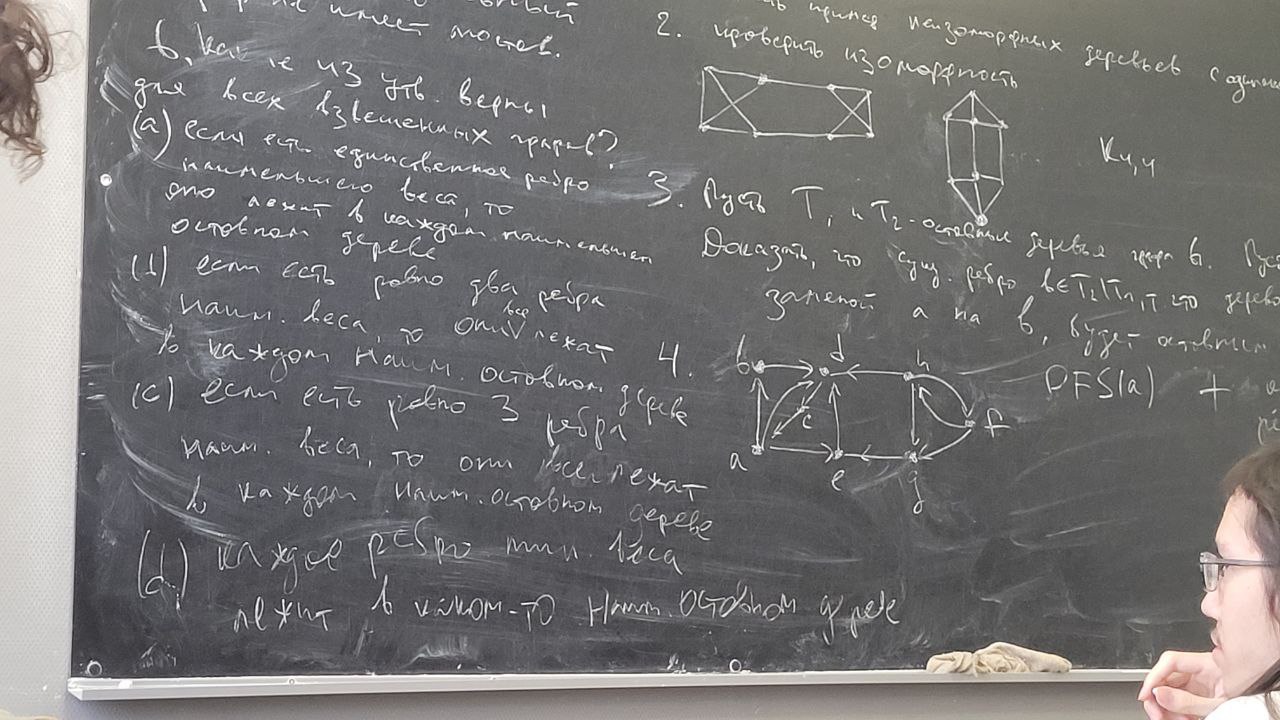 имеет мостов.
6. Какие из утв. верны
для всех взвешенных графов?
(a) если есть единственное ребро
наименьшего веса, то
оно лежит в каждом наименьшем
остовном дереве
(b) если есть ровно два ребра
наим. веса, то они все лежат
в каждом наим. остовном дереве
(c) если есть ровно 3 ребра
наим. веса, то они все лежат
в каждом наим. остовном дереве
(d) каждое ребро мин. веса
лежит в каком-то наим. остовном дереве
неизоморфных деревьев с
2. проверить изоморфность
K4,4
3. Пусть T1 и T2 - остовные деревья графа G.
Доказать, что сущ. ребро b∈T2\T1, т. что дерево
заменой a на b, будет остовным
4.
b d h
a c e g f
DFS(a) +